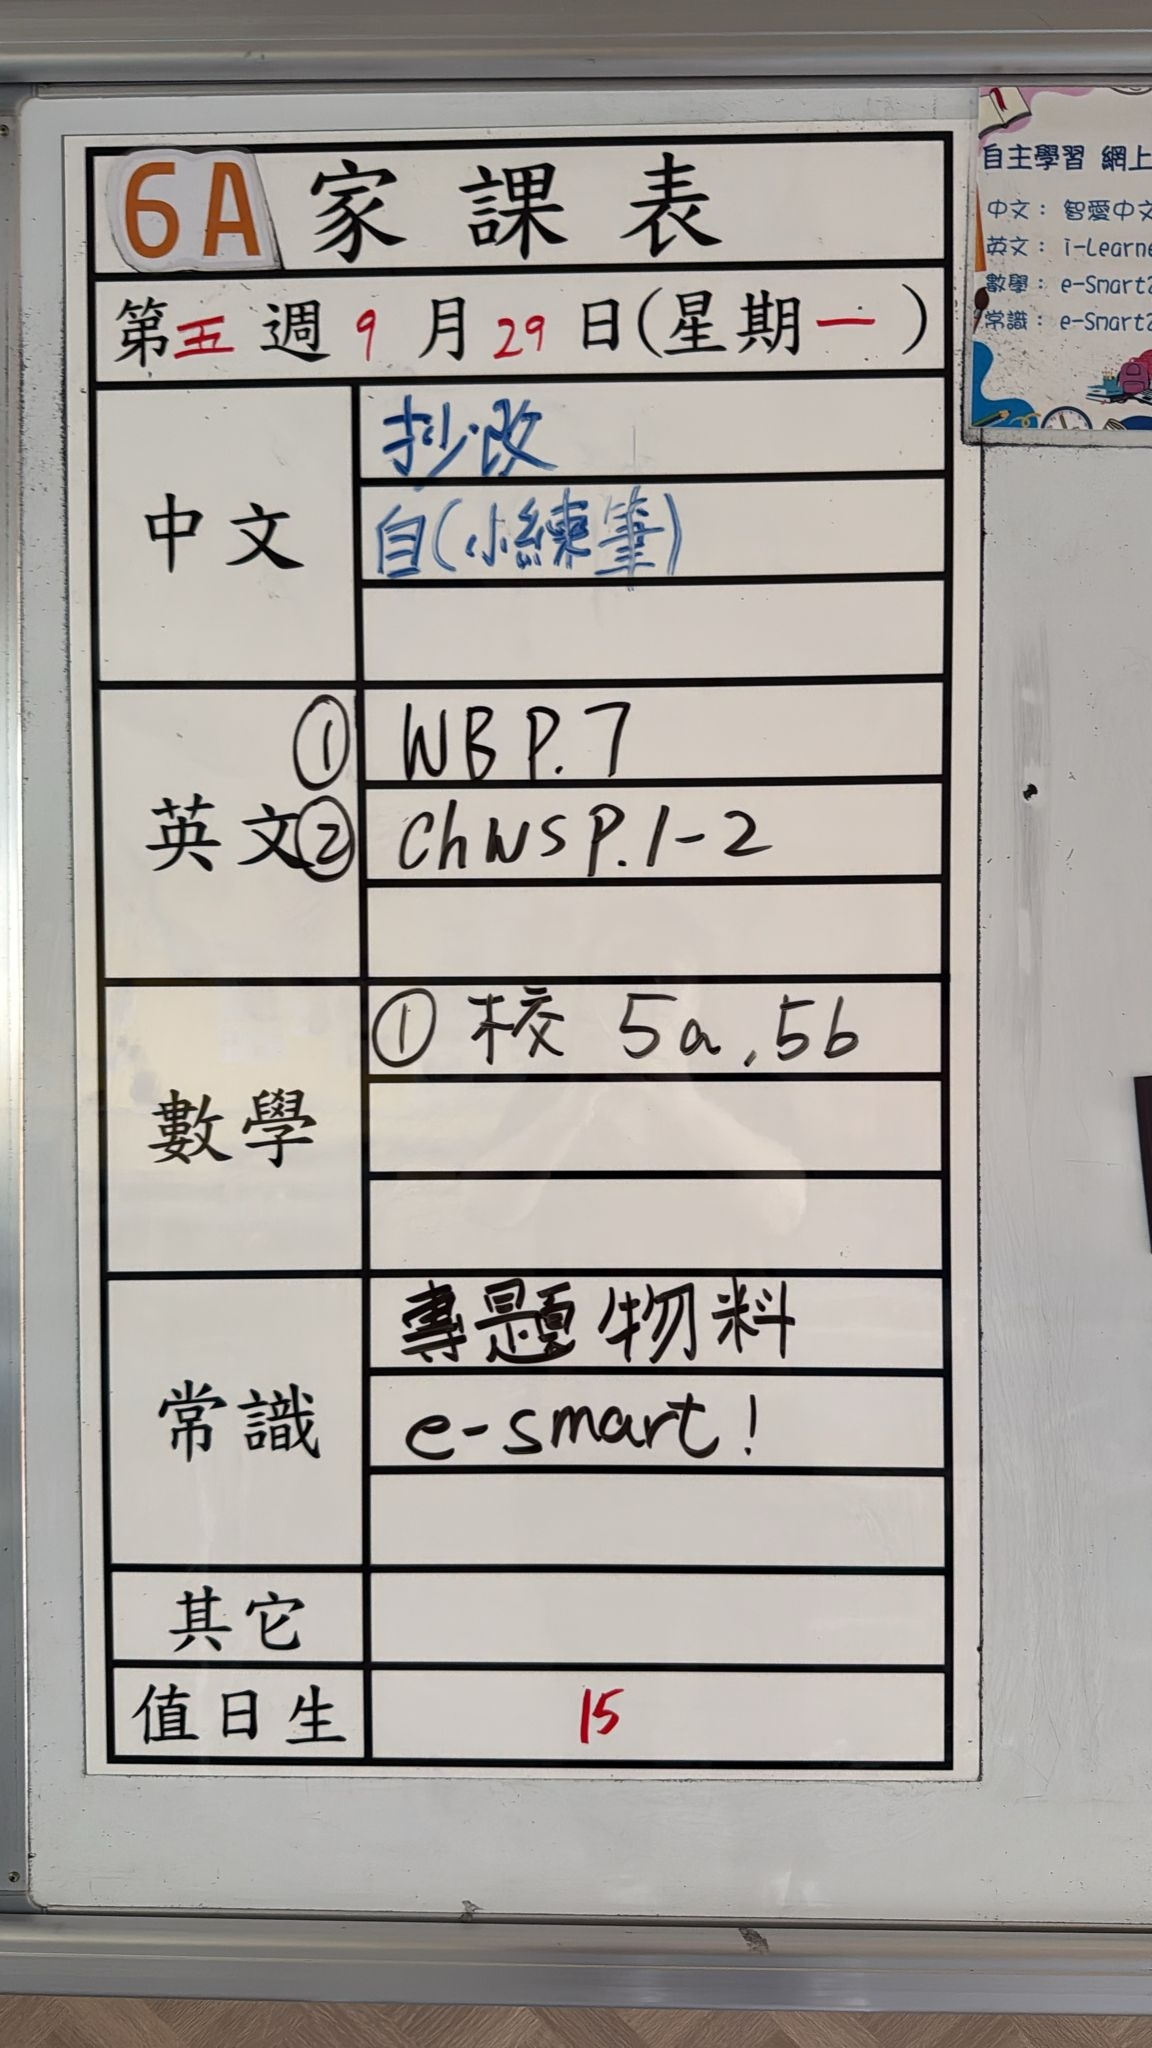 6A 家課表
第五週 9月29日(星期一)
中文
抄.改
自(小練筆)
英文
① WB P.7
② Ch WS P.1-2
數學
① 校 5a, 5b
常識
專題物料
e-smart!
其它
值日生
15
自主學習 網上
中文： 智愛中文
英文： i-Learne
數學： e-Smart2
常識： e-Smart2